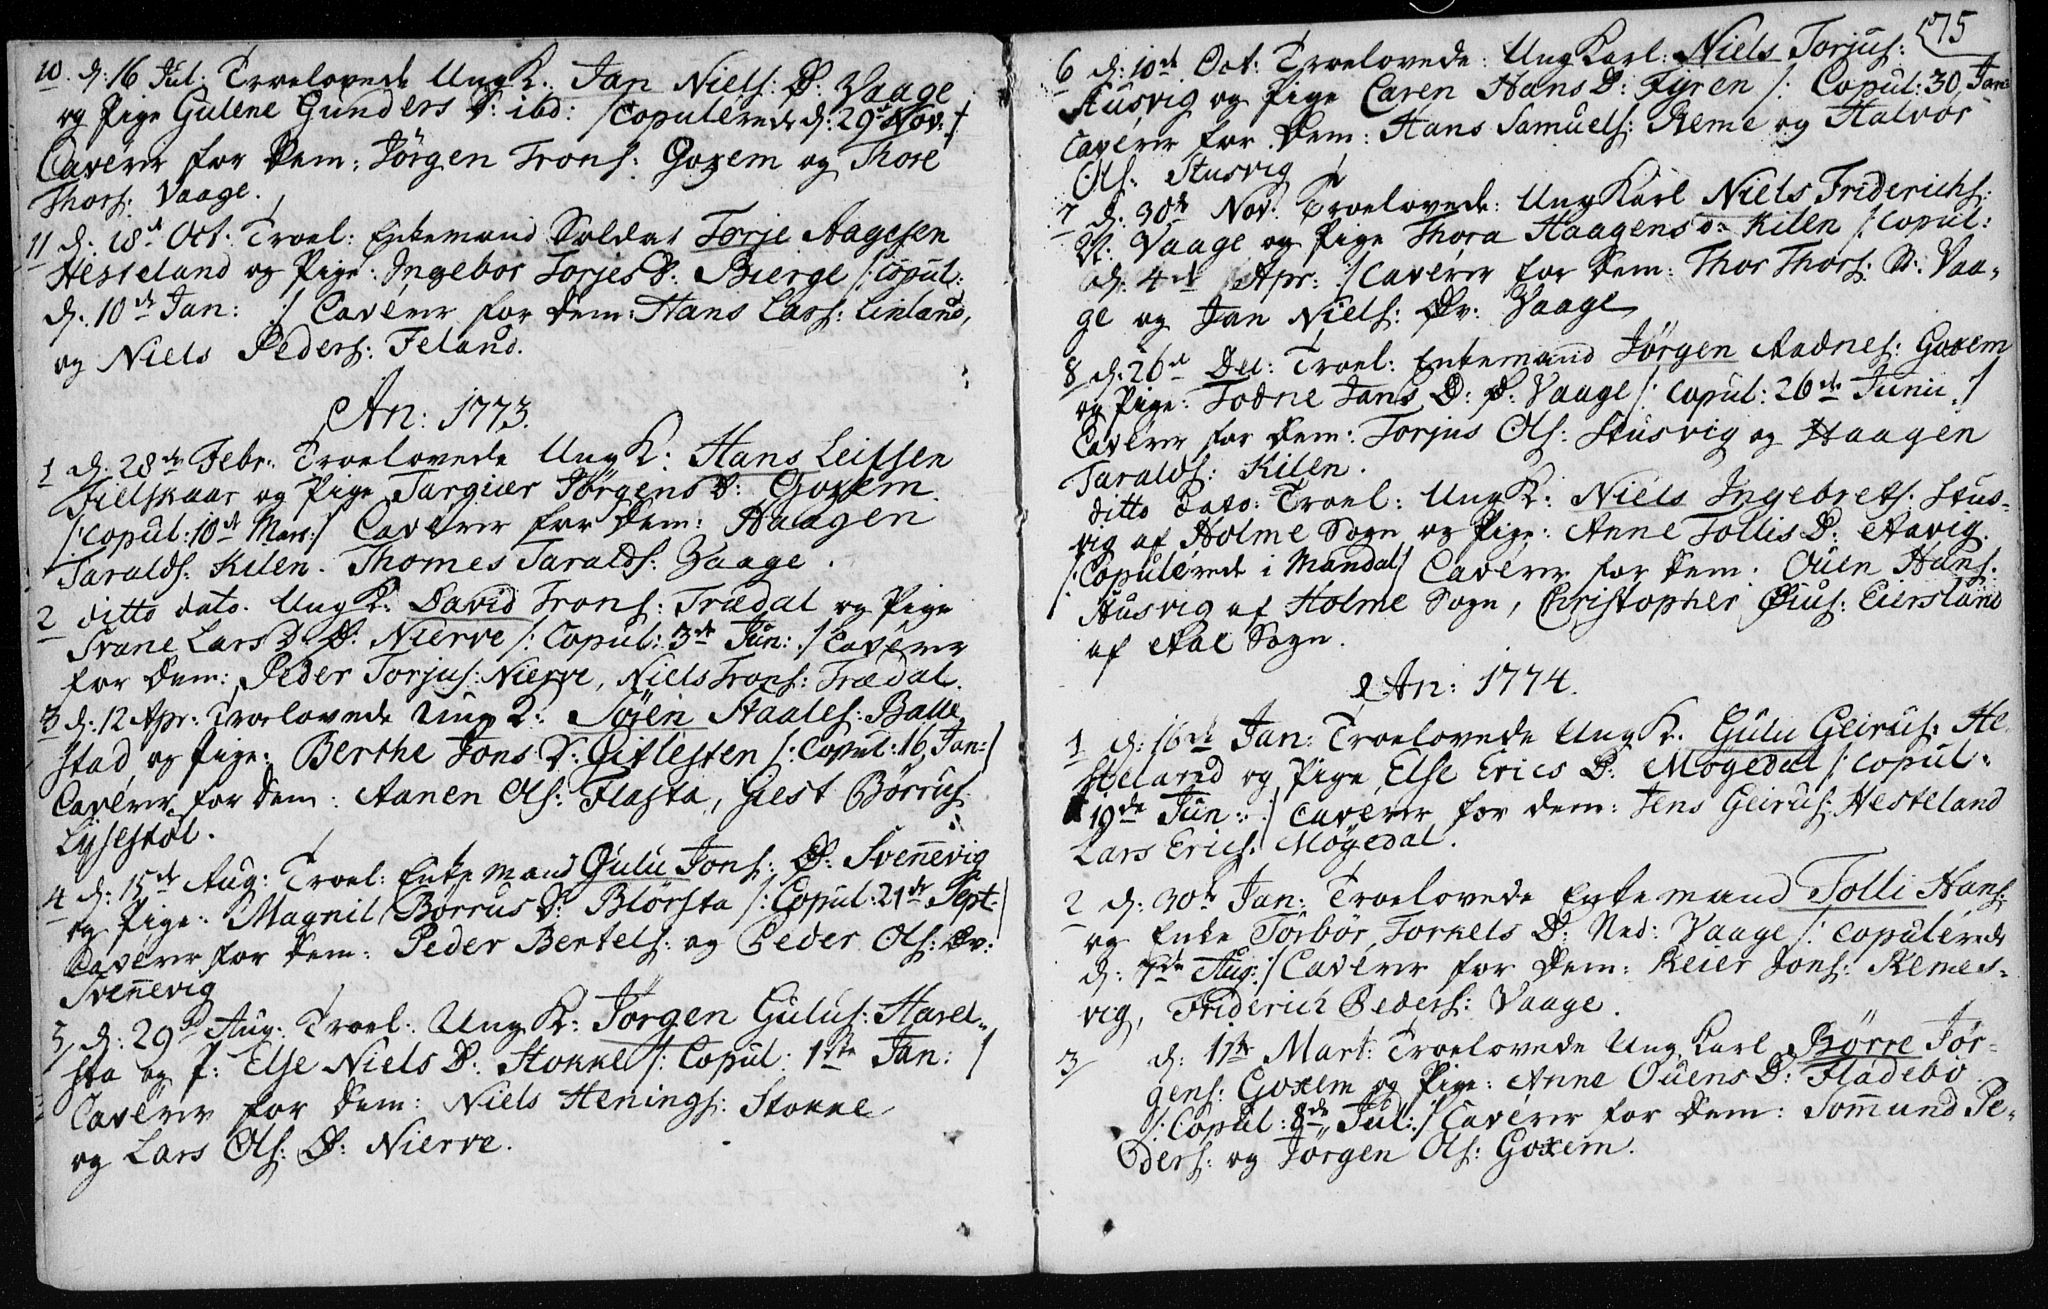 10. d: 16 Jul: Troelovede Ung K. Jan Niels: D. Vaage
og Pige Gulene Gunders D: ibd: /Copulerede d: 29de Nov: /
Caverer for Dem: Jörgen Trons: Goxem og Thore
Thors: Vaage.
11 d. 18de Oct. Troel: Enkemand Soldat Torje Aagesen
Hesseland og Pige: Ingebor Torjes D: Bierge /: Copul:
d. 10de Jan: :/ Caverer for Dem: Hans Lars: Linland,
og Niels Peders: Feland.
An: 1773.
1 d. 28de Febr: Troelovede Ung K: Hans Leifsen
Fielskaar og Pige Targier Jörgens D: Goxem.
/: Copul: 10de Mart:/ Caverer for Dem: Haagen
Taralds: Kilen. Thomes Taralds: Vaage.
2 ditto dato. Ung K: David Trons: Trædal og Pige
Svane Lars D. D: Nierve /: Copul: 3de Jun: :/ Caverer
for Dem: Peder Torjus: Nierve, Niels Trons: Trædal.
3 d: 12 Apr: Troelovede Ung K: Söien Staales: Balle
stad og Pige: Berthe Jons D: Giflesten /: Copul: 16 Jan:/
Caverer for Dem: Aanen Ols: Flasta, Giest Börrus:
Lysestöl.
4 d: 15de Aug: Troel: Enkemand Gulu Jons: D: Svennevig
og Pige: Magnil Börrus D: Blörsta /: Copul: 21de Sept:/
Caverer for Dem: Peder Bertels: og Peder Ols: Öv:
Svennevig
5 d: 29d Aug: Troel: Ung K: Jörgen Gulus: Harel-
sta og P: Else Niels D: Stokke /: Copul: 1ste Jan: /
Caverer for Dem: Niels Henings: Stokke
og Lars Ols: D: Nierve.
175
6 d: 10de Oct: Troelovede Ung Karl: Niels Torjus:
Stusvig og Pige Caren Hans D: Fyren /: Copul: 30 Jan:
Caverer for Dem: Hans Samuels: Reme og Halvor
Ols: Stusvig
7 d. 30te Nov: Troelovede: Ung Karl Niels Friderichs:
Vaage og Pige Thora Haagens D: Kilen /: Copul:
d. 4de Apr: :/ Caverer for Dem: Thor Thors: D: Vaa-
ge og Jan Niels: Öv: Vaage
8 d: 26d Dec: Troel: Enkemand Jörgen Aadnes: Goxem
og Pige: Todne Jans D: D: Vaage /: Copul: 26de Junii :/
Caverer for Dem: Torjus Ols: Stusvig og Haagen
Taralds: Kilen.
ditto dato: Troel: Ung K: Niels Ingebrets: Stus-
vig af Holme Sogn og Pige: Anne Tollis D: Aavig.
/: Copulerede i Mandal/ Caverer for Dem: Ouen Hans:
Stusvig af Holme Sogn, Christopher Öius: Eiersland
af Aae Sogn.
An: 1774.
1 d: 16de Jan: Troelovede Ung K. Gulu Geirus: He-
steland og Pige Else Erics D: Mögedal /: Copul:
19de Jun: :/ Caverer for dem: Jens Geirus: Hesteland
Lars Erics: Mögedal.
2 d: 30te Jan: Troelovede Enkemand Tolli Hans:
og Enke Torbör Torkels D: Ned: Vaage /: Copulerede
d: 7de Aug: :/ Caverer for Dem: Reier Jons: Remes-
vig, Friderich Peders: Vaage.
3 d: 17de Mart: Troelovede Ung Karl Börre Jör-
gens: Goxem og Pige: Anne Ouens D: Fladebo
/: Copul: 8de Jul: :/ Caverer for Dem: Sommund Pe-
ders: og Jörgen Ols: Goxem.